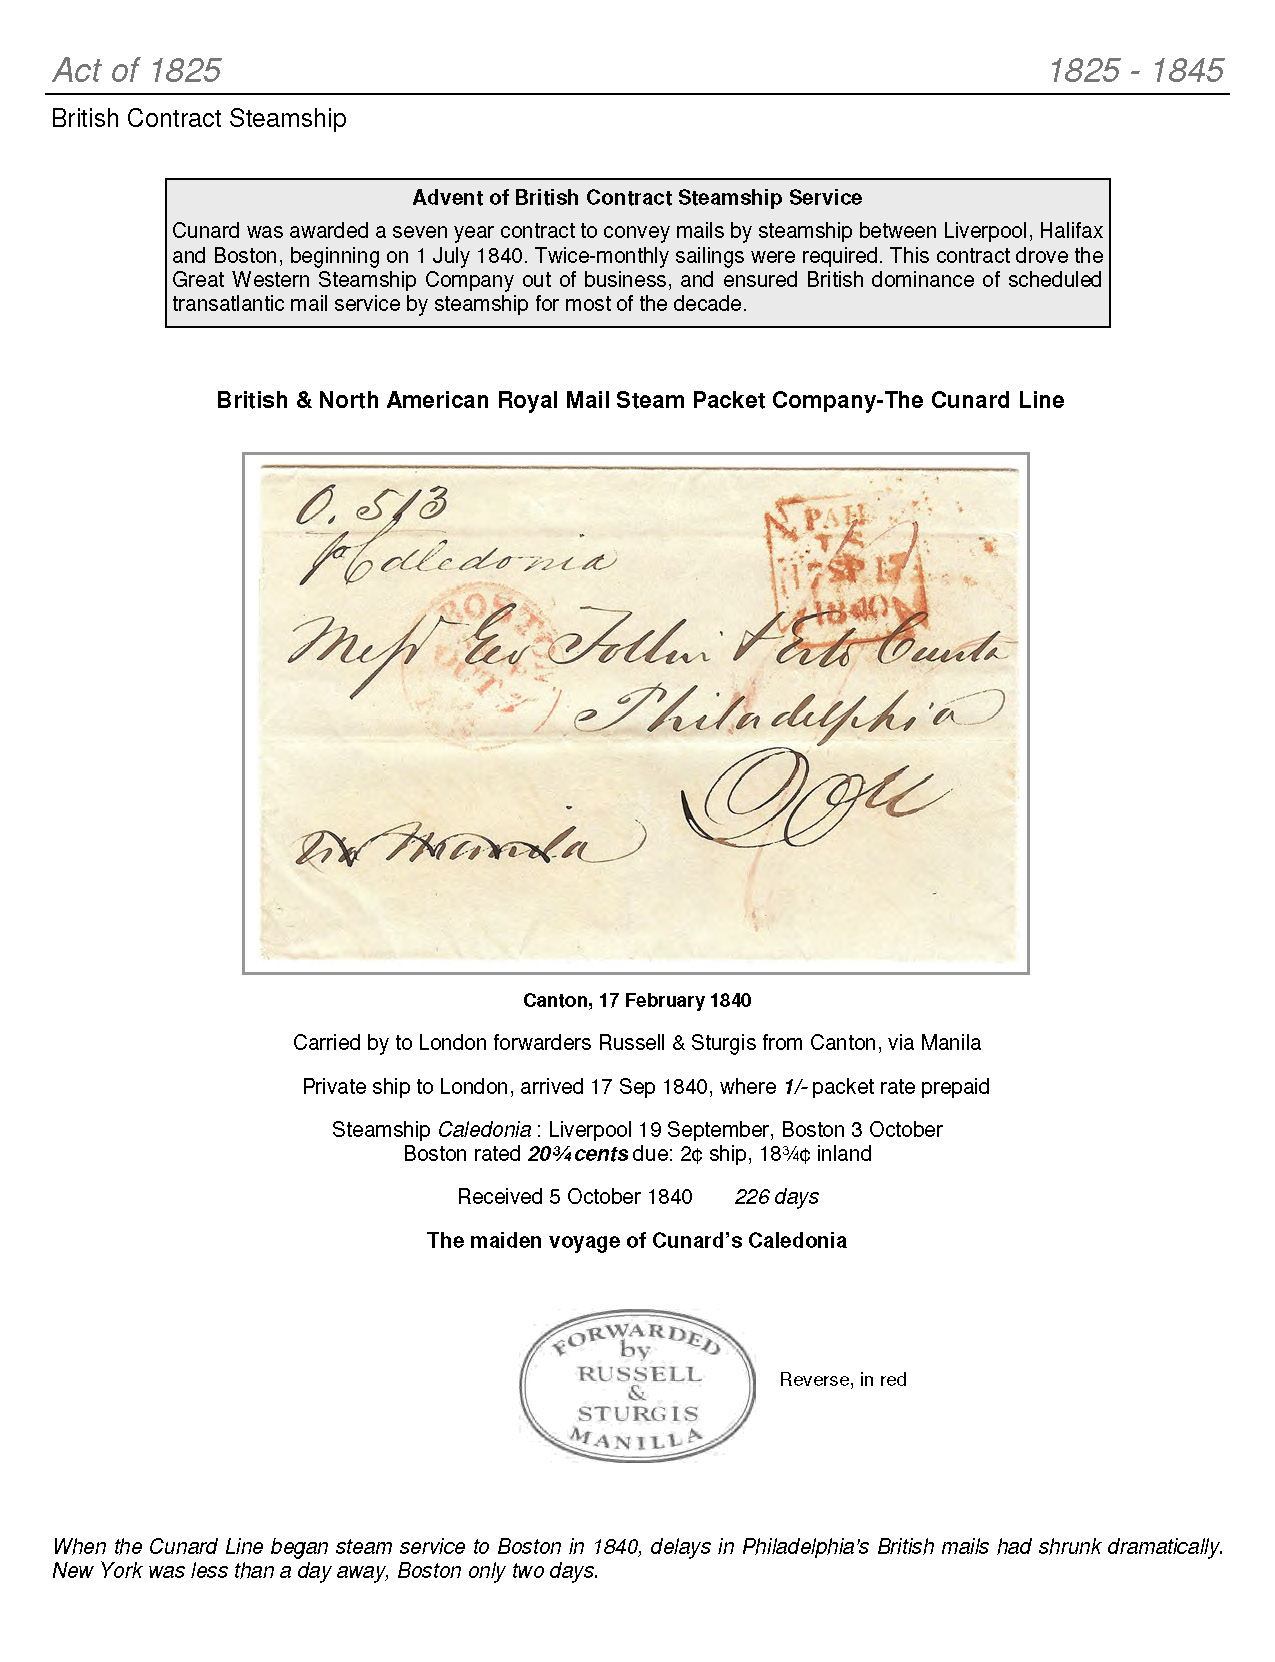 Act of 1825
1825 - 1845
British Contract Steamship
Advent of British Contract Steamship Service
Cunard was awarded a seven year contract to convey mails by steamship between Liverpool, Halifax
and Boston, beginning on 1 July 1840. Twice-monthly sailings were required. This contract drove the
Great Western Steamship Company out of business, and ensured British dominance of scheduled
transatlantic mail service by steamship for most of the decade.
British & North American Royal Mail Steam Packet Company-The Cunard Line
O. 513
PAID
17 SP 17
1840
p Caledonia
BOSTON
OCT
Mess Geo
Philadelphia
via Manila
Canton, 17 February 1840
Carried by to London forwarders Russell & Sturgis from Canton, via Manila
Private ship to London, arrived 17 Sep 1840, where 1/- packet rate prepaid
Steamship Caledonia : Liverpool 19 September, Boston 3 October
Boston rated 20¾ cents due: 2¢ ship, 18¾¢ inland
Received 5 October 1840 226 days
The maiden voyage of Cunard's Caledonia
FORWARDED
by
RUSSELL
&
STURGIS
MANILLA
Reverse, in red
When the Cunard Line began steam service to Boston in 1840, delays in Philadelphia's British mails had shrunk dramatically.
New York was less than a day away, Boston only two days.